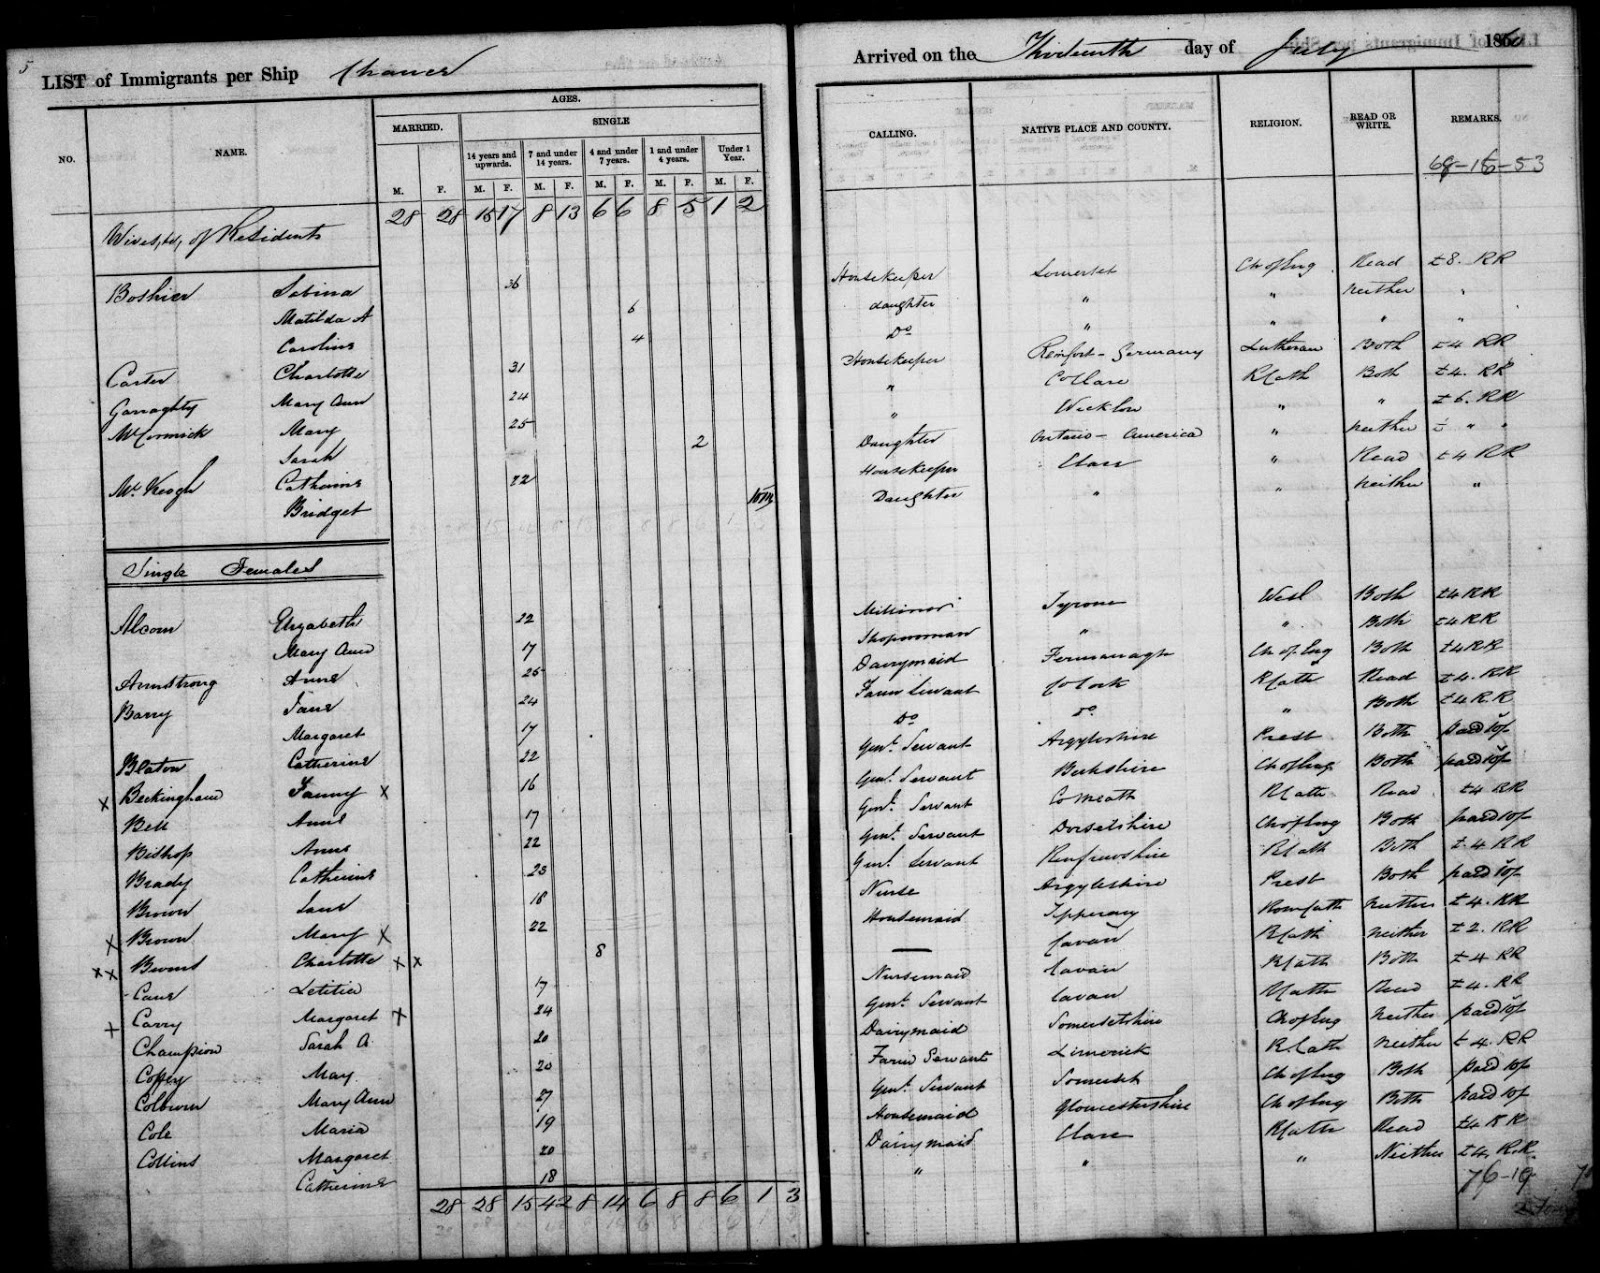 5
LIST of Immigrants per Ship Chaucer
Arrived on the Thirteenth day of July 186
NO. NAME. AGES. CALLING. NATIVE PLACE AND COUNTY. RELIGION. READ OR WRITE. REMARKS.
MARRIED. SINGLE
14 years and upwards. 7 and under 14 years. 4 and under 7 years. 1 and under 4 years. Under 1 Year.
M. F. M. F. M. F. M. F. M. F. M. F.
28 28 15 17 8 13 6 6 8 5 1 2
Wives, &c, of Residents
Boshier Sabina 36 Housekeeper Somerset Ch of Eng Read £8. RR
Matilda A 6 daughter " " Neither "
Caroline 4 Do " " " "
Carter Charlotte 31 Housekeeper Germany Lutheran Both £4 RR
Garraghty Mary Ann 24 " Co Clare R Cath Both £4. RR
McCormick Mary 25 " Wicklow " " £6. RR
Sarah 2 Daughter Ontario - America " Neither " "
McKeogh Catherine 22 Housekeeper Clare " Read £4 RR
Bridget 10m Daughter " " Neither "
Single Females
Alcorn Elizabeth 22 Milliner Tyrone Wesl Both £4 RR
Mary Ann 17 Shopwoman " " Both £4 RR
Armstrong Anne 25 Dairymaid Fermanagh Ch of Eng Both £4 RR
Barry Jane 24 Farm Servant Co Cork R Cath Read £4. RR
Margaret 17 Do Do " Both £4 R.R
Beaton Catherine 22 Genl. Servant Argyleshire Prest Both paid top
x Beckingham Fanny x 16 Genl. Servant Berkshire Ch of Eng Both paid top
Bell Anne 17 Genl. Servant Co Meath R Cath Read £4 RR
Bishop Anne 22 Genl. Servant Dorsetshire Ch of Eng Both paid top
Brady Catherine 23 Genl. Servant Renfrewshire R Cath Both £4 RR
Brown Jane 18 Nurse Argyleshire Prest Both paid top
x Brown Mary x 22 Housemaid Tipperary Rom Cath Neither £4. RR
xx Charlotte xx 8 — Cavan R Cath Neither £2. RR
Cane Letitia 17 Nursemaid Cavan R Cath Both £4 RR
x Carry Margaret x 24 Genl. Servant Cavan R Cath Read £4. RR
Champion Sarah A. 20 Dairymaid Somersetshire Ch of Eng Neither paid top
Coffey May 20 Farm Servant Limerick R. Cath Neither £4. RR
Colborn Mary Ann 27 Genl. Servant Somerset Ch of Eng Both paid top
Cole Maria 19 Housemaid Gloucestershire Ch of Eng Both paid top
Collins Margaret 20 Dairymaid Clare R Cath Read £4 RR
Catherine 18 " " " Neither £4. R.R.
28 28 15 42 8 14 6 8 8 6 1 3